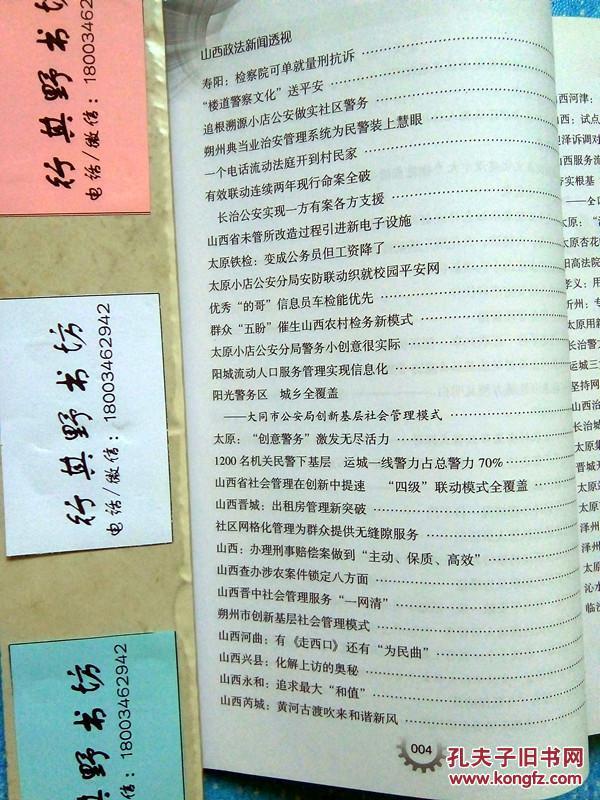 山西政法新闻透视
寿阳：检察院可单就量刑抗诉
“楼道警察文化”送平安
追根溯源小店公安做实社区警务
朔州典当业治安管理系统为民警装上慧眼
一个电话流动法庭开到村民家
有效联动连续两年现行命案全破
长治公安实现一方有案各方支援
山西省未管所改造过程引进新电子设施
太原铁检：变成公务员但工资降了
太原小店公安分局安防联动织就校园平安网
优秀“的哥”信息员车检能优先
群众“五盼”催生山西农村检务新模式
太原小店公安分局警务小创意很实际
阳城流动人口服务管理实现信息化
阳光警务区 城乡全覆盖
——大同市公安局创新基层社会管理模式
太原：“创意警务”激发无尽活力
1200名机关民警下基层 运城一线警力占总警力70%
山西省社会管理在创新中提速 “四级”联动模式全覆盖
山西晋城：出租房管理新突破
社区网格化管理为群众提供无缝隙服务
山西：办理刑事赔偿案做到“主动、保质、高效”
山西查办涉农案件锁定八方面
山西晋中社会管理服务“一网清”
朔州市创新基层社会管理模式
山西河曲：有《走西口》还有“为民曲”
山西兴县：化解上访的奥秘
山西永和：追求最大“和值”
山西芮城：黄河古渡吹来和谐新风
004
西河津：
山西：试点
泽诉调对
山西服务流
夯实根基
——全
太原：“
太原杏花
阳高法院
孝义：用
忻州：专
太原用新
长治警
运城三
坚持网
山西治
长治城
晋城
太原
泽州
泽州
太原
沁水
临汾
行其野书坊
电话/微信：180034629
行其野书坊
电话/微信：18003462942
其野书坊
信：18003462942
孔夫子旧书网
www.kongfz.com